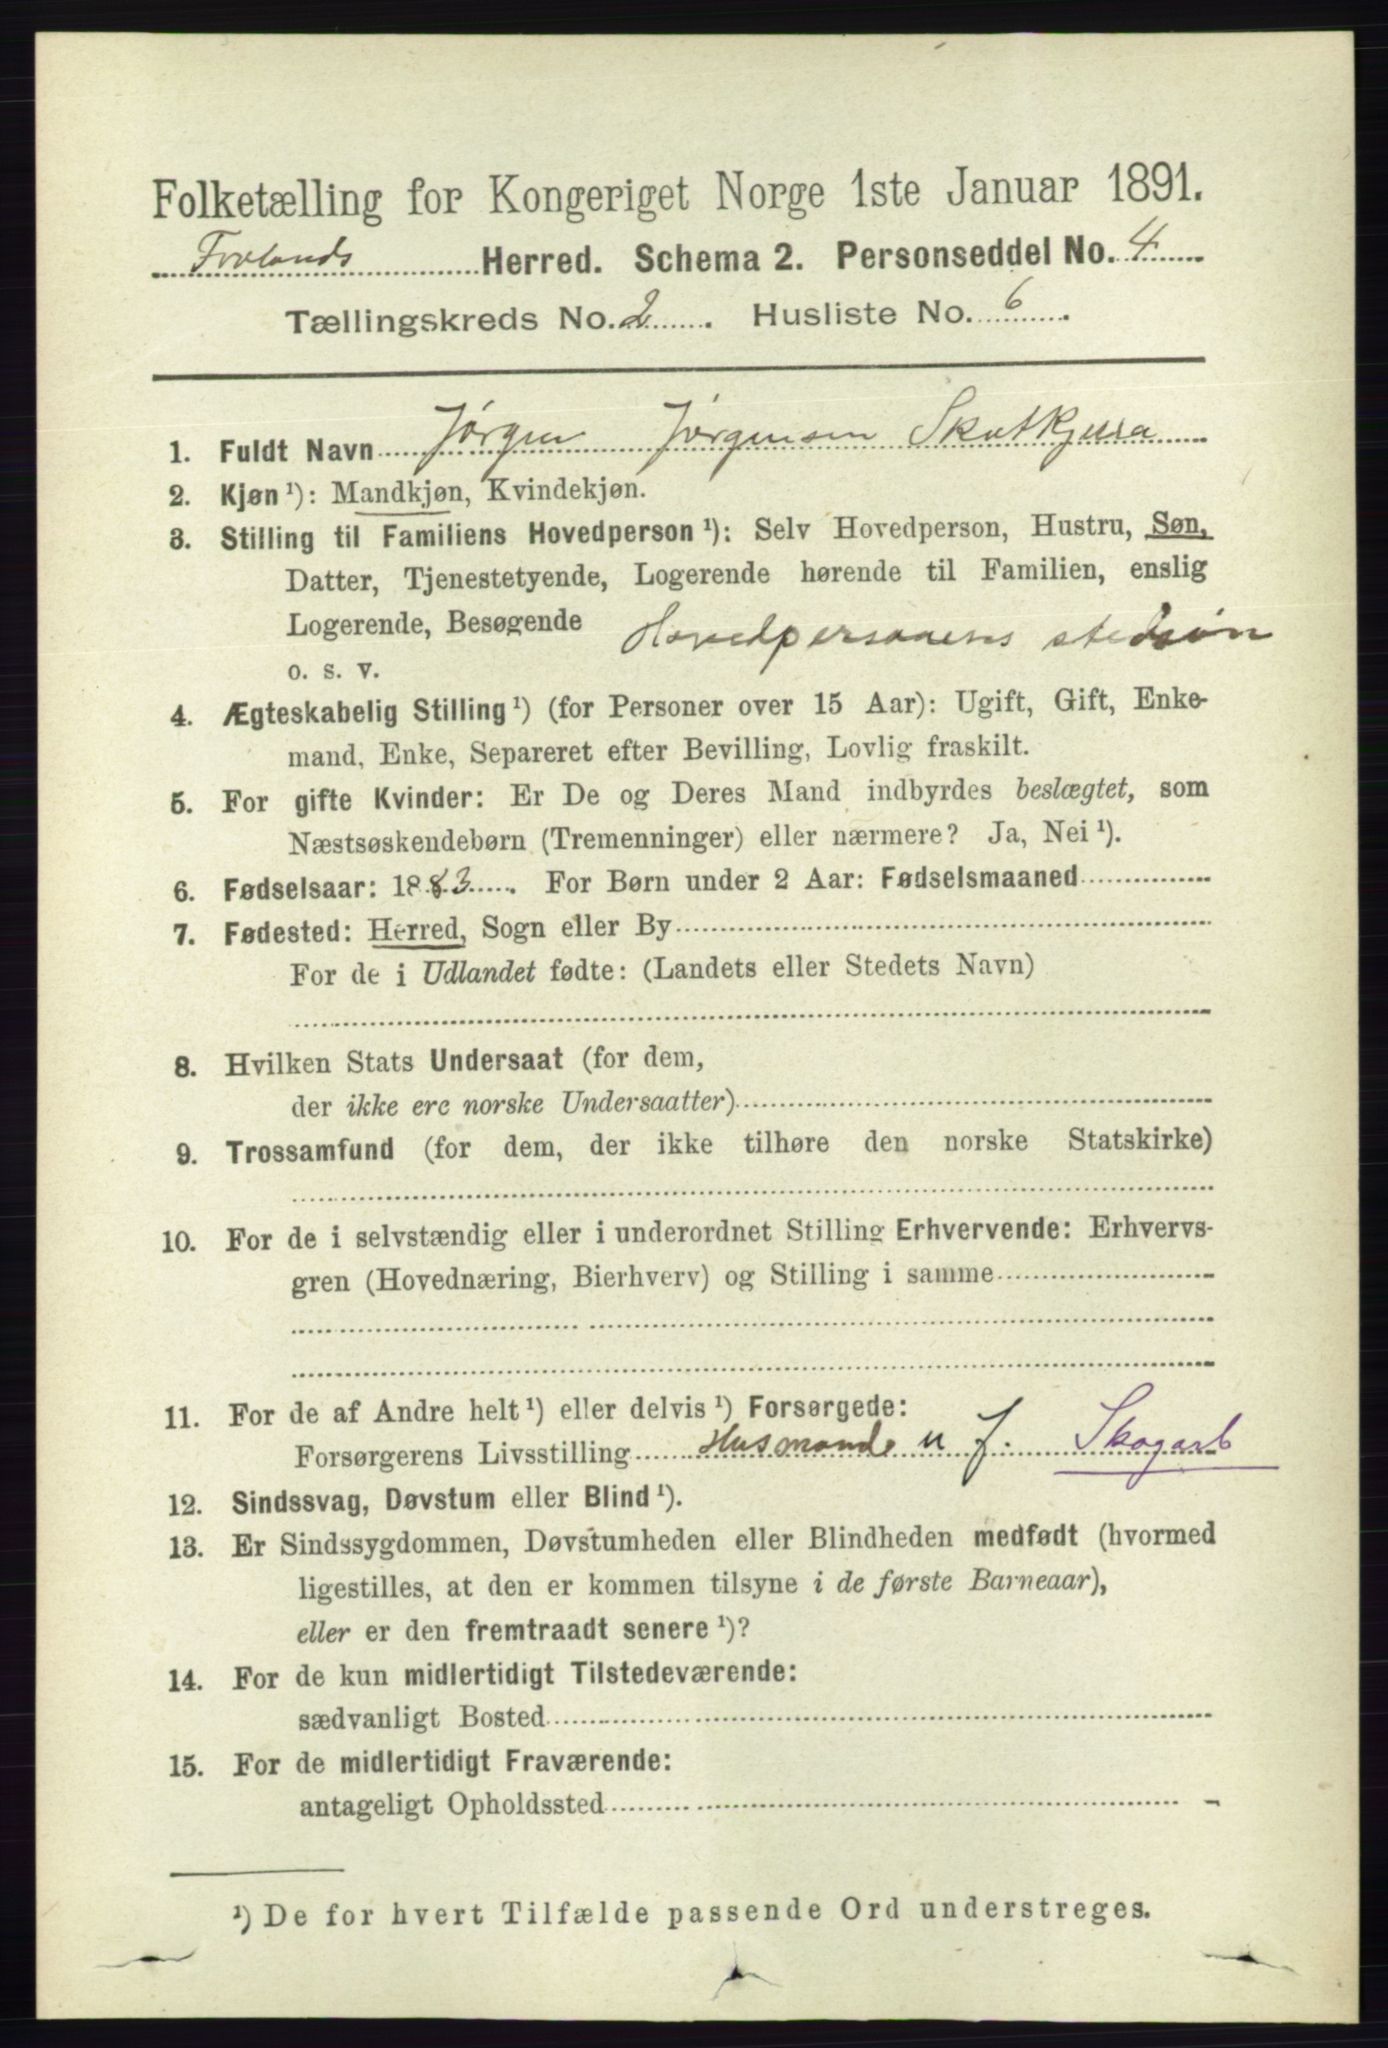 Folketælling for Kongeriget Norge 1ste Januar 1891.
Herred. Schema 2. Personseddel No. 4
Tællingskreds No. 2. Husliste No. 6.
1. Fuldt Navn Jørgen Jørgensen
2. Kjøn ¹): Mandkjøn, Kvindekjøn.
3. Stilling til Familiens Hovedperson ¹): Selv Hovedperson, Hustru, Søn,
Datter, Tjenestetyende, Logerende hørende til Familien, enslig
Logerende, Besøgende Hovedpersonens stedsøn
o. s. v.
4. Ægteskabelig Stilling ¹) (for Personer over 15 Aar): Ugift, Gift, Enke-
mand, Enke, Separeret efter Bevilling, Lovlig fraskilt.
5. For gifte Kvinder: Er De og Deres Mand indbyrdes beslægtet, som
Næstsøskendebørn (Tremenninger) eller nærmere? Ja, Nei ¹).
6. Fødselsaar: 1883. For Børn under 2 Aar: Fødselsmaaned
7. Fødested: Herred, Sogn eller By
For de i Udlandet fødte: (Landets eller Stedets Navn)
8. Hvilken Stats Undersaat (for dem,
der ikke ere norske Undersaatter)
9. Trossamfund (for dem, der ikke tilhøre den norske Statskirke)
10. For de i selvstændig eller i underordnet Stilling Erhvervende: Erhvervs-
gren (Hovednæring, Bierhverv) og Stilling i samme
11. For de af Andre helt ¹) eller delvis ¹) Forsørgede:
Forsørgerens Livsstilling Husmand u J. Skogarb
12. Sindssvag, Døvstum eller Blind ¹).
13. Er Sindssygdommen, Døvstumheden eller Blindheden medfødt (hvormed
ligestilles, at den er kommen tilsyne i de første Barneaar),
eller er den fremtraadt senere ¹)?
14. For de kun midlertidigt Tilstedeværende:
sædvanligt Bosted
15. For de midlertidigt Fraværende:
antageligt Opholdssted
¹) De for hvert Tilfælde passende Ord understreges.